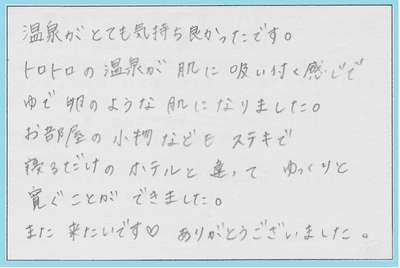 温泉がとても気持ち良かったです。
トロトロの温泉が肌に吸い付く感じで
ゆで卵のような肌になりました。
お部屋の小物などもステキで
寝るだけのホテルと違って ゆっくりと
寛ぐことができました。
また来たいです♡ ありがとうございました。